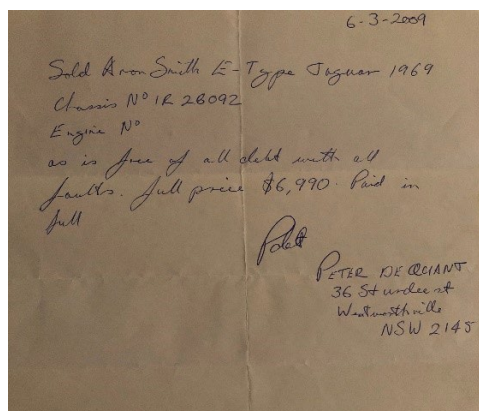 6-3-2009
Sold Aron Smith E-Type Jaguar 1969
Chassis Nº 1R 28092
Engine Nº
as is free of all debt with all
faults. full price $6,990. Paid in
full
PETER DE QUIANT
36 Sturdee st
Wentworthville
NSW 2145